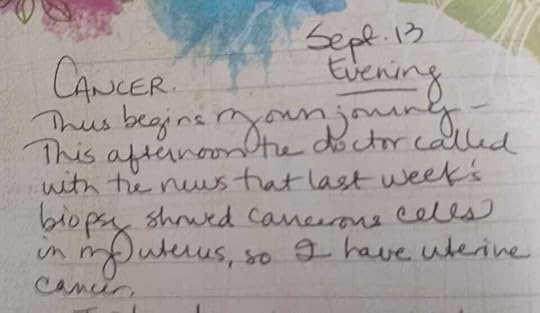 Sept. 13
Evening
CANCER.
Thus begins my own journey –
This afternoon the doctor called
with the news that last week's
biopsy showed cancerous cells
in my uterus, so I have uterine
cancer.